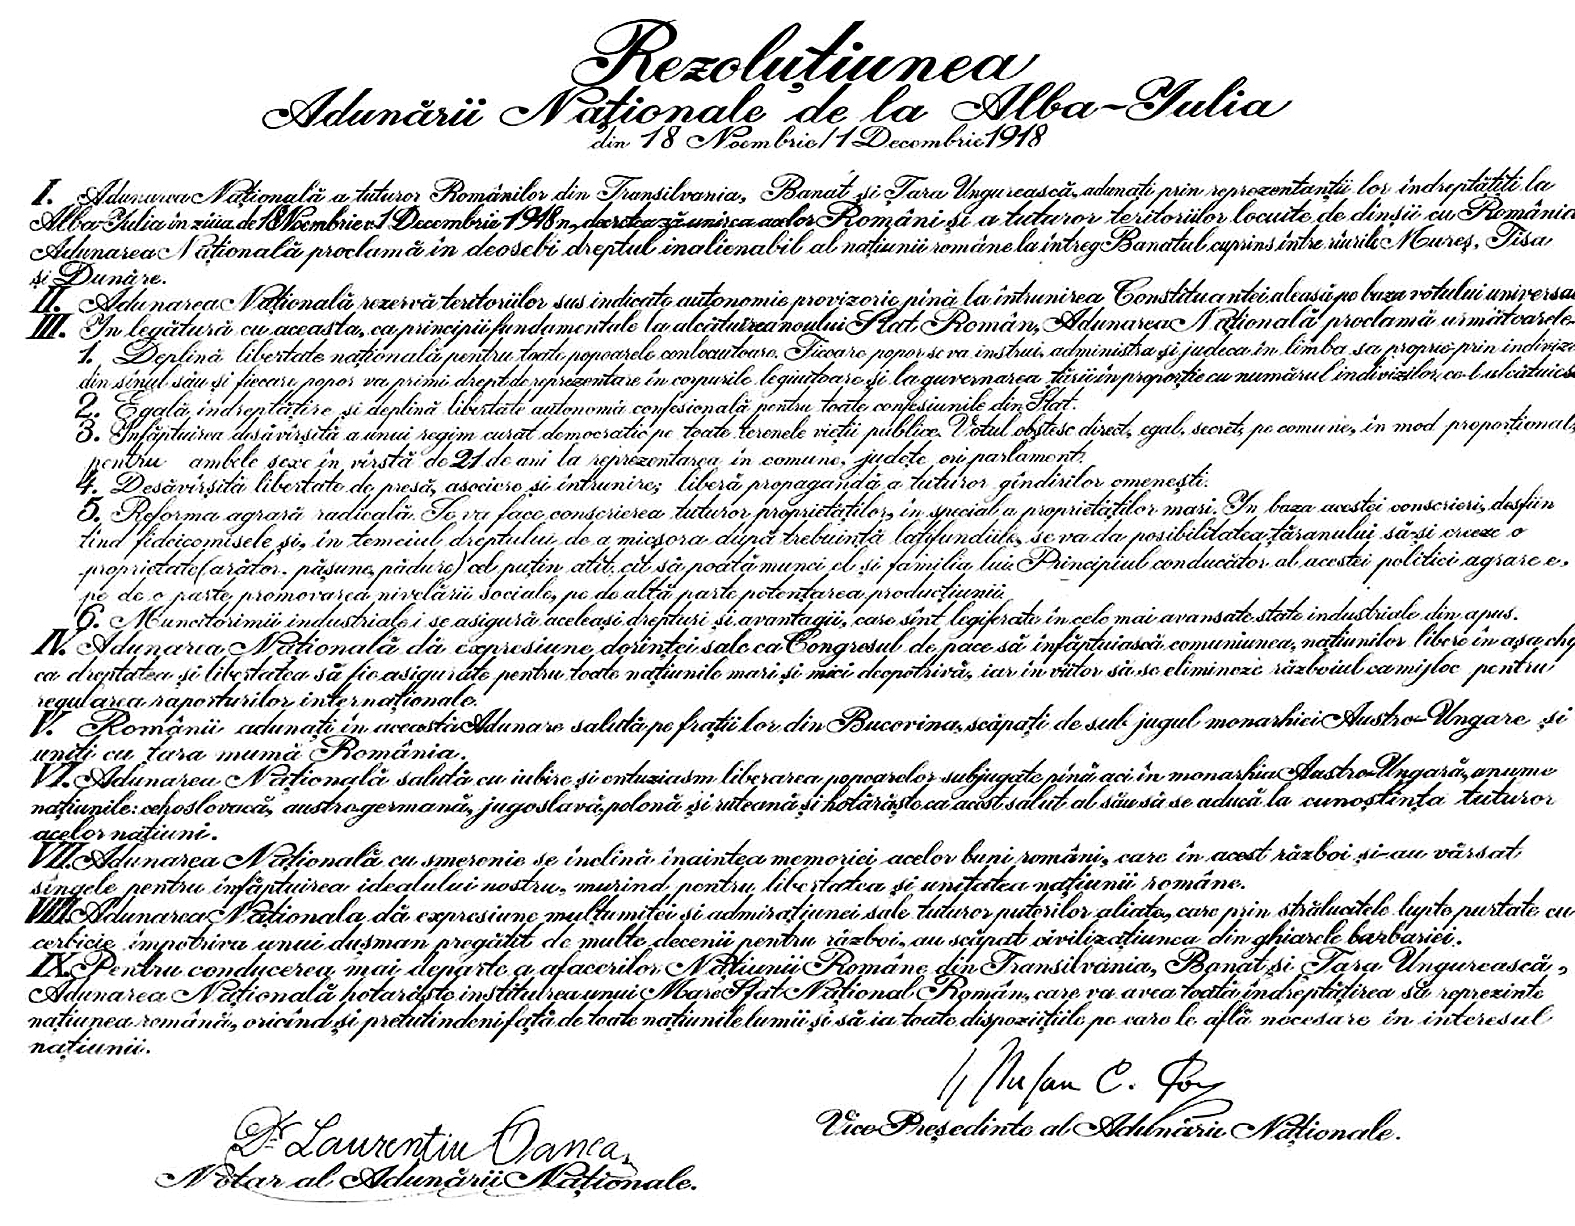 Rezoluțiunea
Adunării Naționale de la Alba-Iulia
din 18 Noembrie/1 Decembrie 1918
I. Adunarea Națională a tuturor Românilor din Transilvania, Banat și Țara Ungurească, adunați prin reprezentanții lor îndreptățiți la
Alba-Iulia în ziua de 18 Noembrie v. 1 Decembrie 1918 n., decretează unirea acelor Români și a tuturor teritoriilor locuite de dînșii cu România
Adunarea Națională proclamă în deosebi dreptul inalienabil al națiunii române la întreg Banatul cuprins între rîurile Mureș, Tisa
și Dunăre.
II. Adunarea Națională rezervă teritoriilor sus indicate autonomie provizorie pînă la întrunirea Constituantei alease pe baza votului univers
III. In legătură cu aceasta, ca principii fundamentale la alcătuirea noului Stat Român, Adunarea Națională proclamă următoarele
1. Deplină libertate națională pentru toate popoarele conlocuitoare. Fiecare popor se va instrui, administra și judeca în limba sa proprie prin indivizi
din sînul său și fiecare popor va primi drept de reprezentare în corpurile legiuitoare și la guvernarea țării în proporție cu numărul indivizilor ce-l alcătuiesc
2. Egală îndreptățire și deplină libertate autonomă confesională pentru toate confesiunile din Stat.
3. Infăptuirea desăvîrșită a unui regim curat democratic pe toate terenele vieții publice. Votul obștesc direct, egal, secret, pe comune, în mod proporțional,
pentru ambele sexe în vîrstă de 21 de ani la reprezentarea în comune, județe ori parlament.
4. Desăvîrșită libertate de presă, asociere și întrunire; liberă propagandă a tuturor gîndirilor omenești.
5. Reforma agrară radicală. Se va face conscrierea tuturor proprietăților, în special a proprietăților mari. In baza acestei conscrieri, desfiin
țind fideicomisele și, în temeiul dreptului de a micșora după trebuință latifundiile, se va da posibilitatea țăranului să-și creeze o
proprietate (arător, pășune, pădure) cel puțin atît cît să poată munci el și familia lui. Principiul conducător al acestei politici agrare e,
pe de o parte promovarea nivelării sociale, pe de altă parte potențarea producțiunii.
6. Muncitorimii industriale i se asigură aceleași drepturi și avantagii, care sînt legiferate în cele mai avansate state industriale din apus.
IV. Adunarea Națională dă expresiune dorinței sale ca Congresul de pace să înfăptuiască comuniunea națiunilor libere în așa chip
ca dreptatea și libertatea să fie asigurate pentru toate națiunile mari și mici deopotrivă, iar în viitor să se elimineze războiul ca mijloc pentru
regularea raporturilor internaționale.
V. Românii adunați în această Adunare salută pe frații lor din Bucovina, scăpați de sub jugul monarhiei Austro-Ungare și
uniți cu țara mumă România.
VI. Adunarea Națională salută cu iubire și entuziasm liberarea popoarelor subjugate pînă aci în monarhia Austro-Ungară, anume
națiunile: cehoslovacă, austro-germană, jugoslavă, polonă și ruteană și hotărăște ca acest salut al său să se aducă la cunoștința tuturor
acelor națiuni.
VII. Adunarea Națională cu smerenie se înclină înaintea memoriei acelor buni români, care în acest război și-au vărsat
sîngele pentru înfăptuirea idealului nostru, murind pentru libertatea și unitatea națiunii române.
VIII. Adunarea Naționala dă expresiune mulțumitei și admirațiunei sale tuturor puterilor aliate, care prin strălucitele lupte purtate cu
cerbicie împotriva unui dușman pregătit de multe decenii pentru război, au scăpat civilizațiunea din ghiarele barbariei.
IX. Pentru conducerea mai departe a afacerilor Națiunii Române din Transilvania, Banat și Țara Ungurească,
Adunarea Națională hotărăște instituirea unui Mare Sfat Național Român, care va avea toată îndreptățirea să reprezinte
națiunea română, oricînd și pretutindeni față de toate națiunile lumii și să ia toate dispozițiile pe care le află necesare în interesul
națiunii.
Ștefan C. Pop
Vice Președinte al Adunării Naționale.
Dr Laurențiu Oanea,
Notar al Adunării Naționale.